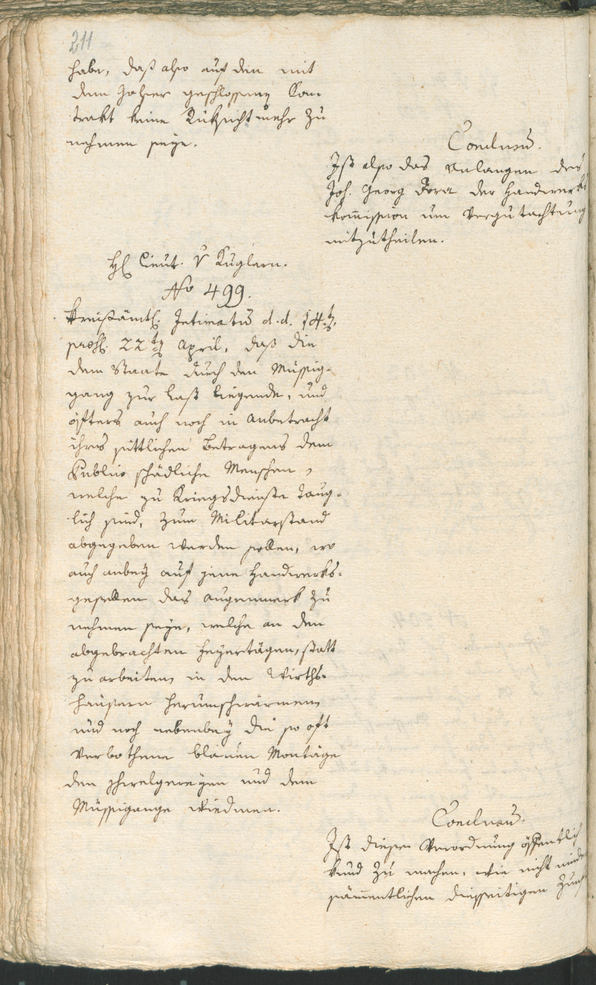 211
habe, daß also auf den mit
dem Johser geschlossenen Con
trakt keine Rüksicht mehr zu
nehmen seye.
Conclusum.
Ist also das Anlangen des
Joh. Georg Dora der Handwerks
kom̃ission um Vergutachtung
mitzutheilen.
H Lieut. v Kuglern.
No 499.
Kreisämtl. Intimatum d. d. 14t
præs. 22ten April, daß die
dem Staate durch den Müssig-
gang zur last liegende, und
öfters auch noch in Anbetracht
ihres sittlichen Betragens dem
Publico schädliche Menschen,
welche zu Kriegsdienste taug-
lich sind, zum Militarstand
abgegeben werden sollen, wo
auch anbey auf jene Handwerks-
gesellen das Augenmerk zu
nehmen seye, welche an den
abgebrachten Feyertägen, statt
zu arbeiten, in den Wirths-
häusern herumschwärmen
und noch nebenbey die so oft
verbothene blauen Montäge
den schwelgereyen und dem
Müssigange wiedmen.
Conclusum.
Ist diesen Verordnung öffentlich
kund zu machen, wie nicht minder
säm̃entlichen diesseitigen Zunft